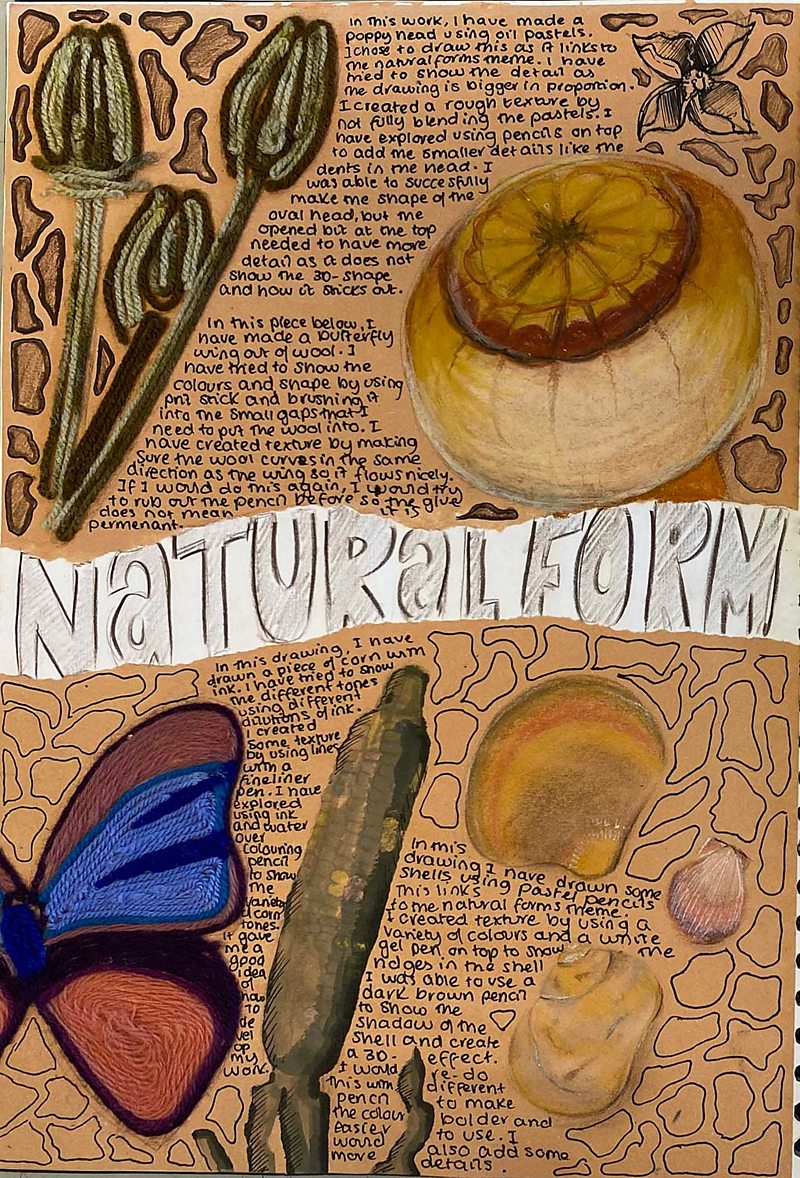 In this work, I have made a
poppy head using oil pastels.
I chose to draw this as it links to
the natural forms theme. I have
tried to show the detail as
the drawing is bigger in proportion.
I created a rough texture by
not fully blending the pastels. I
have explored using pencils on top
to add the smaller details like the
dents in the head. I
was able to succesfully
make the shape of the
oval head, but the
opened bit at the top
needed to have more
detail as it does not
show the 3D-shape
and how it sticks out.
In this piece below, I
have made a butterfly
wing out of wool. I
have tried to show the
colours and shape by using
prit stick and brushing it
into the small gaps that I
need to put the wool into. I
have created texture by making
sure the wool curves in the same
direction as the wing so it flows nicely.
If I would do this again, I would try
to rub out the pencil before so the glue
does not mean it is
permenant.
NATURAL FORM
In this drawing, I have
drawn a piece of corn with
ink. I have tried to show
the different tones
using different
dilutions of ink.
I created
some texture
by using lines
with a
fineliner
pen. I have
explored
using ink
and water
over
colouring
pencil
to show
the
variety
of corn
tones.
It gave
me a
good
idea
of
how
to
de
vel
op
my
work.
In this
drawing I have drawn some
shells using pastel pencils
This links
to the natural forms theme.
I created texture by using a
variety of colours and a white
gel pen on top to show the
ridges in the shell
I was able to use a
dark brown pencil
to show the
shadow of the
shell and create
a 3D- effect.
I would re-do
this with different
pencil to make
the colour bolder and
easier to use. I
would also add some
more details.